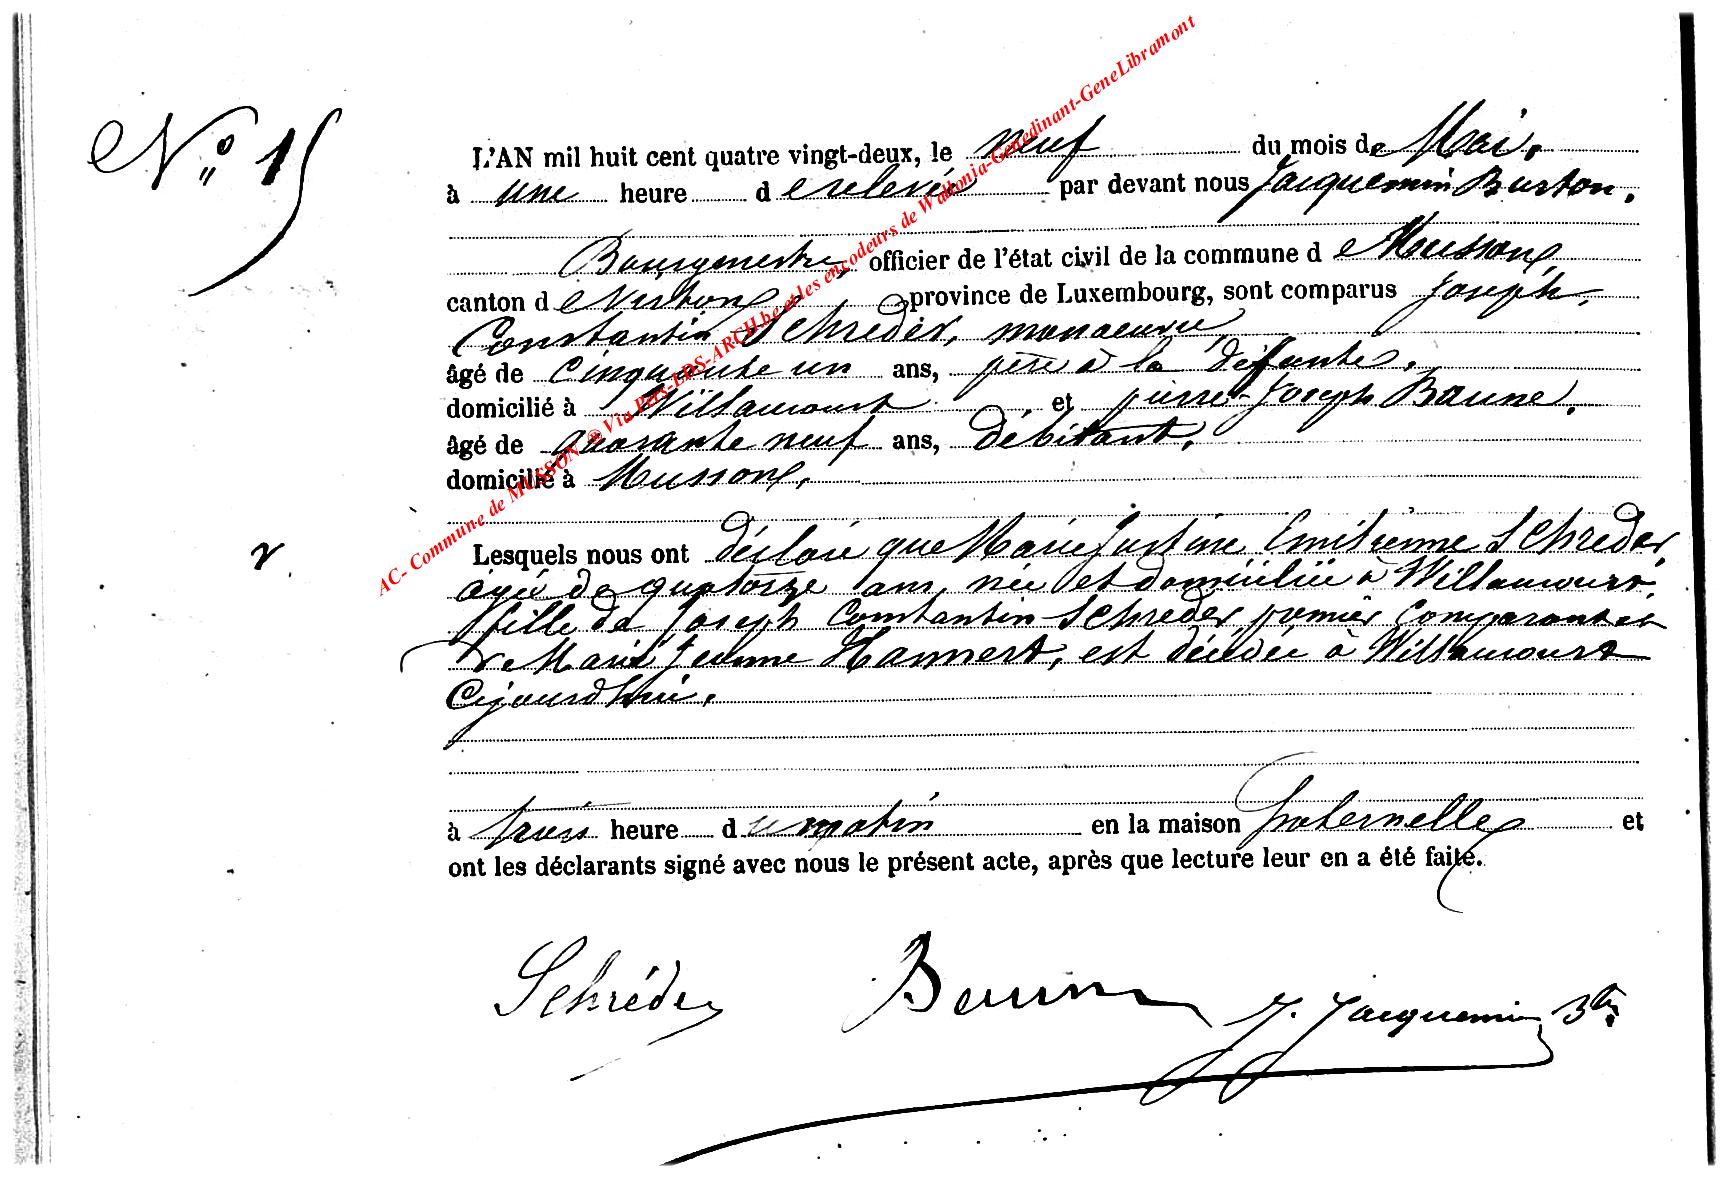 N° 15
L'AN mil huit cent quatre vingt-deux, le neuf du mois de Mai.
à une heure de relevée par devant nous Jacquemin Burton.
Bourgmestre, officier de l'état civil de la commune de Musson,
canton de Virton, province de Luxembourg, sont comparus Joseph
Constantin Schréder, manoeuvre,
âgé de cinquante un ans, père à la défunte.
domicilié à Willancourt et pierre-Joseph Baune.
âgé de quarante neuf ans, débitant.
domicilié à Musson.
Lesquels nous ont déclaré que Marie Justine Emilienne Schréder
agée de quatorze ans née et domiciliée à Willancourt,
fille de Joseph Constantin Schréder premier Comparant et
de Marie Jeanne Hannert, est décédée à Willancourt
Cejourd'hui.
à trois heure du matin en la maison paternelle et
ont les déclarants signé avec nous le présent acte, après que lecture leur en a été faite.
Schréder Baune J. Jacquemin Btn.
AC- Commune de MUSSON ® Via Pers-LDS-ARCH.be et les encodeurs de Wallonia-Genedinant-GeneLibramont